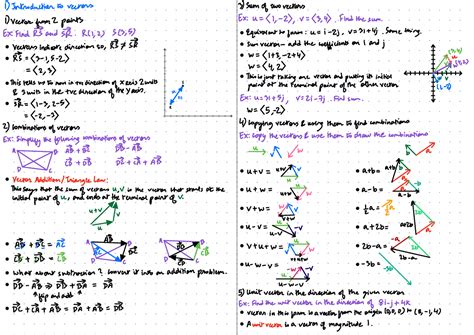 1) Introduction to vectors
1) Vector from 2 points
Ex: Find RS and SR. R(1,2) S(3,5)
• Vectors indicate direction so, RS ≠ SR
• RS = ⟨3-1, 5-2⟩
= ⟨2, 3⟩
• This tells us to sum in the direction of x axis 2 units
& 3 units in the +ve direction of the y axis.
• SR = ⟨1-3, 2-5⟩
= ⟨-2, -3⟩
2) Combinations of vectors
Ex: Simplify the following combinations of vectors
AB + BC DB - AB
CB + DC DC + CA + AB
• Vector Addition/Triangle Law:
This says that the sum of vectors u, v is the vector that starts at the
initial point of u, and ends at the terminal point of v.
u+v
v
u
• AB + BC = AC
• CB + DC = DB
• What about subtraction? Convert it into an addition problem.
• DB - AB = DB + BA = DA
flip and add
• DC + CA + AB = DA + AB = DB
3) Sum of two vectors
Ex: u = ⟨1, -2⟩, v = ⟨3, 4⟩. Find the sum
• Equivalent to form: u = i - 2j, v = 3i + 4j. Same thing.
• Sum vector - add the coefficients on i and j
• w = ⟨1+3, -2+4⟩
w = ⟨4, 2⟩
• This is just taking one vector and putting its initial
point at the terminal point of the other vector
Ex: u = 3i + 5j, v = 2i - 7j. Find sum.
w = ⟨5, -2⟩
4) Copying vectors & using them to find combinations
Ex: Copy the vectors & use them to draw the combinations
u v w b a
• u+v =
• u+w =
• v+w =
• u-v =
• v+u+w =
• u-w-v =
• a+b =
• a-b =
• ½a =
• a+2b =
• 2b-a =
• -3b
5) Unit vector in the direction of the given vector
Ex: Find the unit vector in the direction of 8i - j + 4k
• Vector in this form is a vector from the origin (0,0,0) to (8,-1,4)
• A unit vector is a vector of magnitude 1.